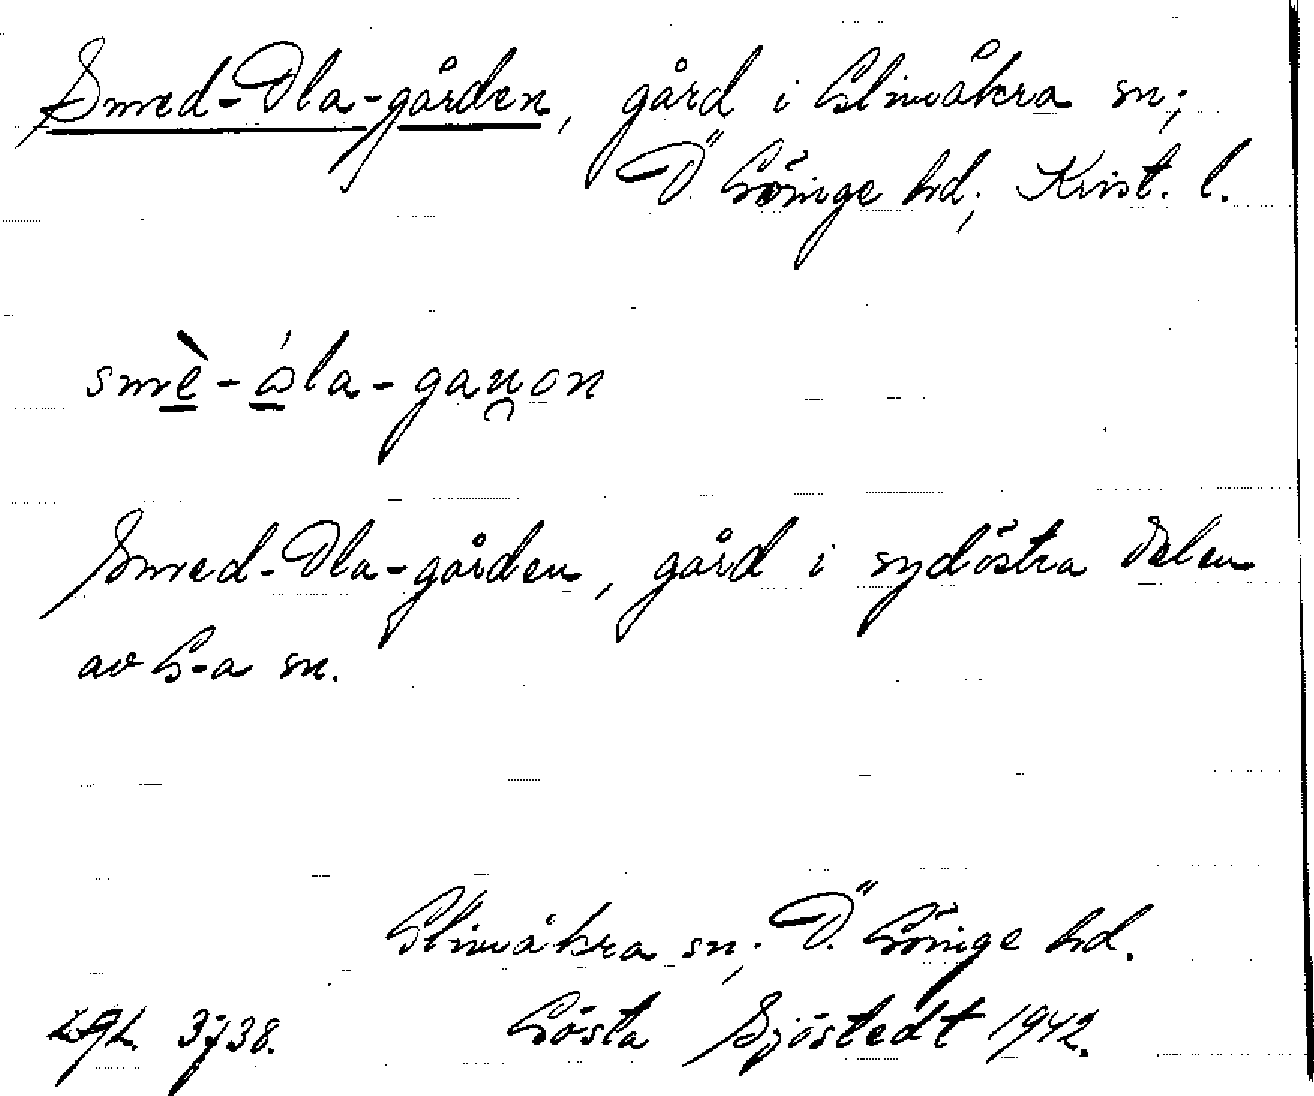 Smed-Ola-gården, gård i Glimåkra sn;
Ö Göinge hd; Krist. l.
smè-óla-ganon
Smed-Ola-gården, gård i sydöstra delen
av G-a sn.
Glimåkra sn; Ö. Göinge hd.
Gösta Sjöstedt 1942.